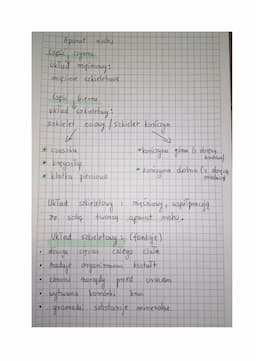 Aparat ruchu
Część czynna
układ mięśniowy:
mięśnie szkieletowe
Część bierna
układ szkieletowy:
szkielet osiowy / szkielet kończyn
• czaszka
• kręgosłup
• klatka piersiowa
• kończyna górna (z obręczą
barkową)
• kończyna dolna (z obręczą
miednicy)
Układ szkieletowy i mięśniowy, współpracują
ze sobą tworząc aparat ruchu.
Układ szkieletowy: (funkcje)
• dźwiga ciężar całego ciała
• nadaje organizmowi kształt
• chroni narządy przed urazem
• wytwarza komórki krwi
• gromadzi substancje mineralne